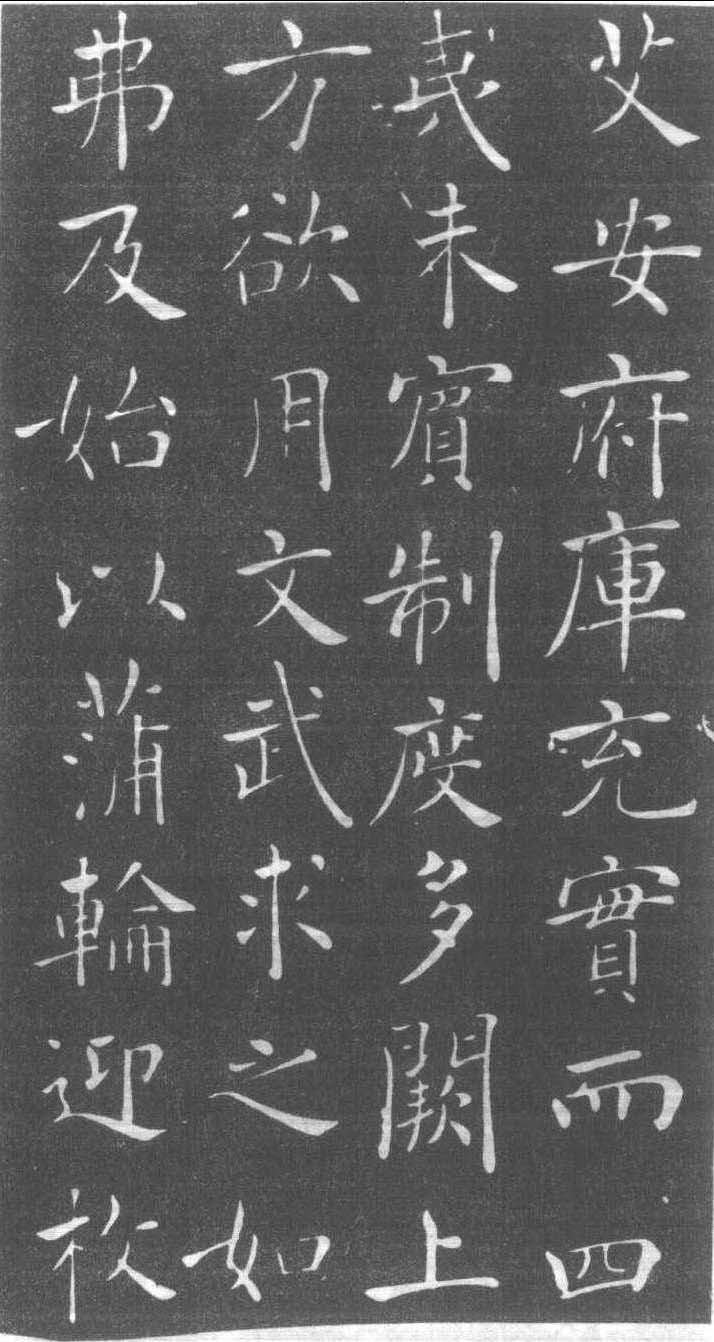 艾安府庫充實而四
夷未賓制度多闕上
方欲用文武求之如
弗及始以蒲輪迎枚